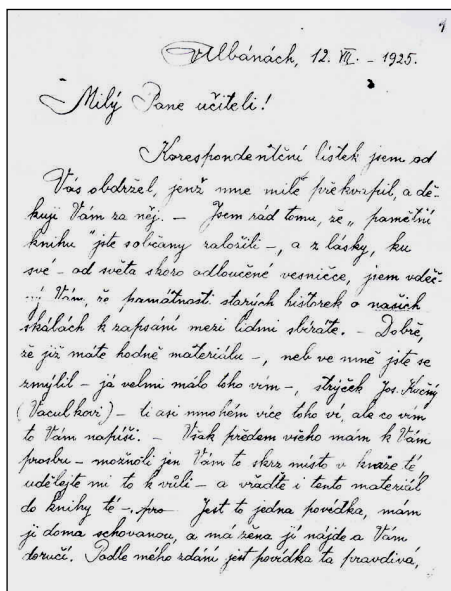 V Albánách, 12. VII. - 1925.
Milý Pane učiteli!
Korespondenční lístek jsem od
Vás obdržel, jenž mne mile překvapil, a dě-
kuji Vám za něj. - Jsem rád tomu, že „pamětní
knihu" jste s občany založili -, a z lásky, ku
své - od světa skoro odloučené vesničce, jsem vděč-
ný Vám, že památnosti starých historek o našich
skálách k zapsání mezi lidmi sbíráte. - Dobře,
že již máte hodně materiálu -, neb ve mně jste se
zmýlil - já velmi málo toho vím -, strýček Jos. Kučný
(Vaculkovi) - ti asi mnohém více toho ví, ale co vím
to Vám napíši. - Však předem všeho mám k Vám
prosbu - možnóli jen Vám to skrz místo v knize té,
udělejte mi to k vůli - a vřaďte i tento materiál
do knihy té -. pro Jest to jedna povídka, mám
ji doma schovanou, a má žena jí nájde a Vám
doručí. Podle mého zdání jest povídka ta pravdivá,